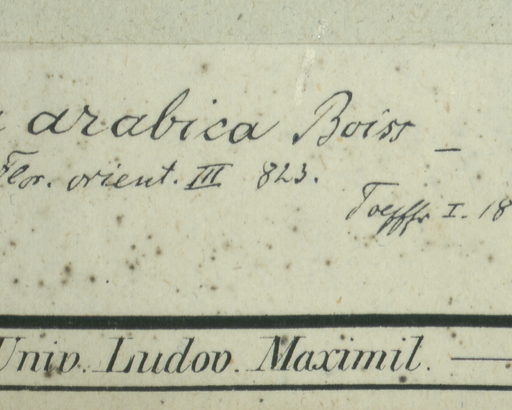 arabica Boiss –
Flor. orient. III 823.
I. 18
Univ. Ludov. Maximil. —